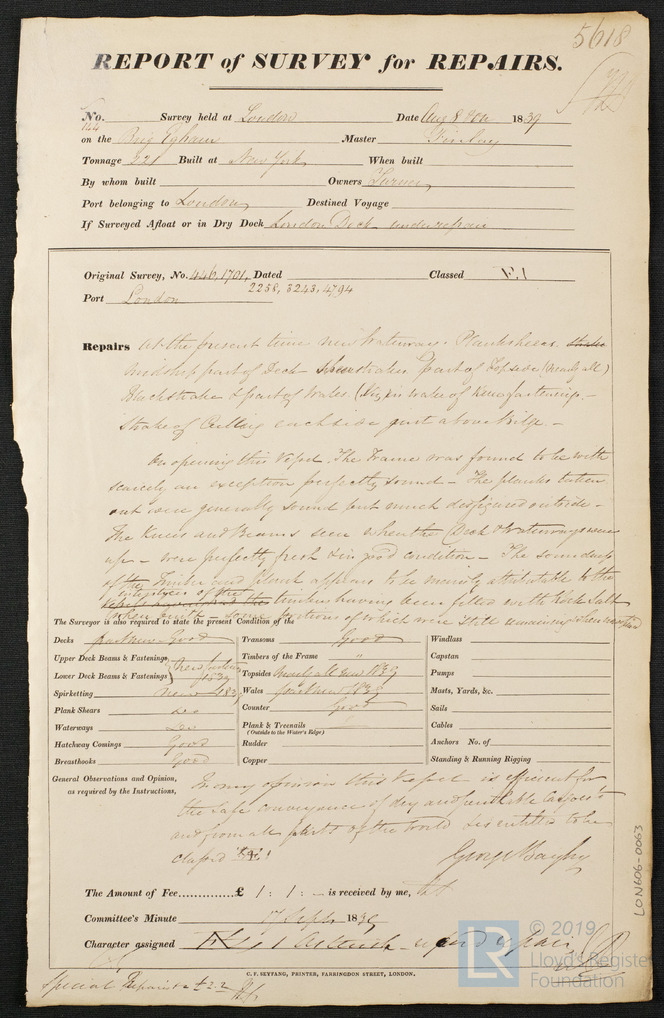 5618
REPORT of SURVEY for REPAIRS.
No. 144 Survey held at London Date Aug 8 1839
on the Brig Egham Master Finlay
Tonnage 221 Built at New York When built
By whom built Owners Turner
Port belonging to London Destined Voyage
If Surveyed Afloat or in Dry Dock London Dock under repair
Original Survey, No. 446, 1701, 2258, 3243, 4794 Dated Classed Æ1
Port London
Repairs At the present time new Waterways. Planksheers
midship part of Deck part of Topside (nearly all)
Blackstrake & part of Wales in wake of Knee fastening. -
Strake of Ceiling each side just above Bilge. -
On opening this Vessel, The Frame was found to be with
scarcely an exception perfectly sound - The planks taken
out were generally sound but much disfigured outside -
The Knees and Beams seen when the Deck & Waterways were
up - were perfectly fresh & in good condition - The soundness
of the Timber and plank appears to be merely attributable to the
timbers having been filled with Rock Salt
when built - some portions of which were still remaining when
The Surveyor is also required to state the present Condition of the
Decks part new Good
Upper Deck Beams & Fastenings
Lower Deck Beams & Fastenings } New fastening 1839
Spirketting new 1839
Plank Shears Do
Waterways Do
Hatchway Comings Good
Breasthooks Good
Transoms Good
Timbers of the Frame "
Topsides nearly all new 1839
Wales part new 1839
Counter Good
Plank & Treenails
(Outside to the Water's Edge)
Rudder
Copper
Windlass
Capstan
Pumps
Masts, Yards, &c.
Sails
Cables
Anchors No. of
Standing & Running Rigging
General Observations and Opinion,
as required by the Instructions,
In my opinion this Vessel is efficient for
the safe conveyance of dry and perishable Cargoes
and from all parts of the World & is entitled to be
classed Æ1
George Bayley
The Amount of Fee £ 1 : 1 : - is received by me,
Committee's Minute 17 Septr 1839
Character assigned
C. F. SEYFANG, PRINTER, FARRINGDON STREET, LONDON.
Special Repairs £2.2
LON606-0063
LR
© 2019
Lloyd's Register
Foundation